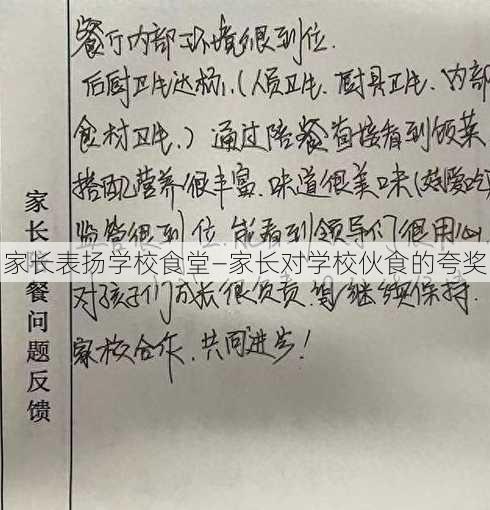 餐厅内部环境很到位.
后厨卫生达标,(人员卫生.厨具卫生.内部
食材卫生.)通过陪餐直接看到饭菜
搭配营养很丰富.味道很美味(
监管很到位.能看到领导们很用心
家长表扬学校食堂—家长对学校伙食的夸奖
对孩子们成长很负责.继续保持.
家校合作.共同进步!
家长陪餐问题反馈